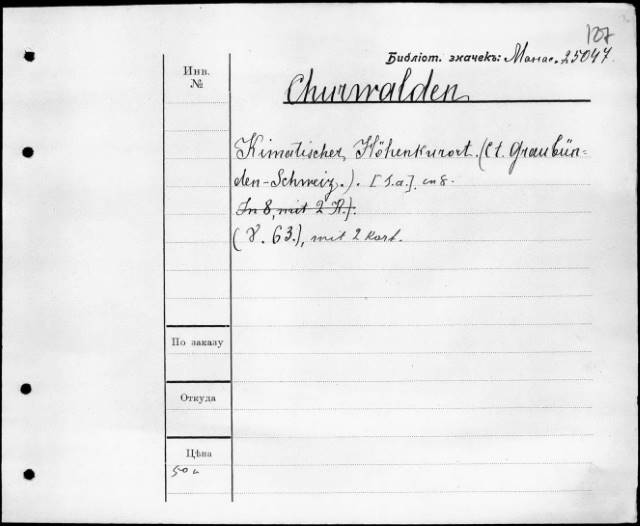 107
Библіот. значекъ: Манас. 25047.
Инв.
№
Churwalden
Kimatischer Höhenkurort. (Ct. Graubün=
den-Schweiz.). [S.a.]. in 8.
In 8, mit 2 K.).
(8. 63.), mit 2 Kart.
По заказу
Откуда
Цѣна
50